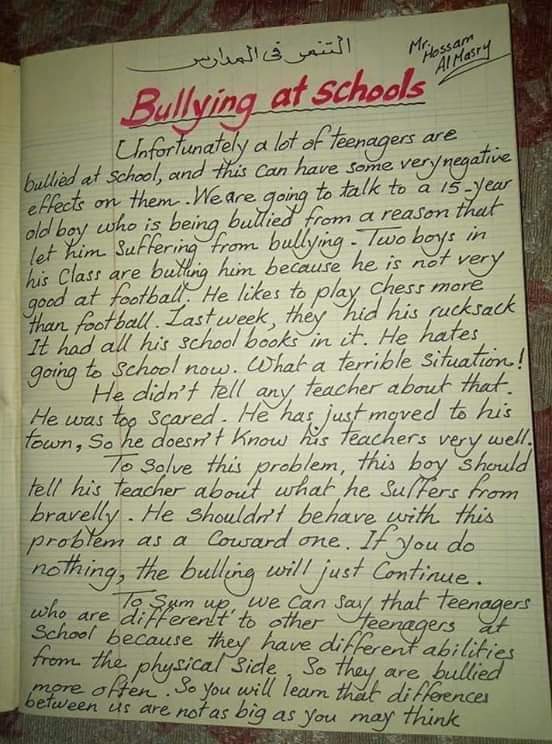 التنمر فى المدارس
Mr. Hossam
Al Masry
Bullying at schools
Unfortunately a lot of teenagers are
bullied at School, and this can have some very negative
effects on them. We are going to talk to a 15-year
old boy who is being bullied from a reason that
let him suffering from bullying. Two boys in
his Class are bulling him because he is not very
good at football. He likes to play chess more
than football. Last week, they hid his rucksack
It had all his school books in it. He hates
going to School now. What a terrible situation!
He didn't tell any teacher about that.
He was too scared. He has just moved to his
town, So he doesn't know his teachers very well.
To solve this problem, this boy should
tell his teacher about what he suffers from
bravelly. He shouldn't behave with this
problem as a Coward one. If you do
nothing, the bulling will just Continue.
To Sum up, we can say that teenagers
who are different to other teenagers at
School because they have different abilities
from the physical side. So they are bullied
more often. So you will learn that differences
between us are not as big as you may think